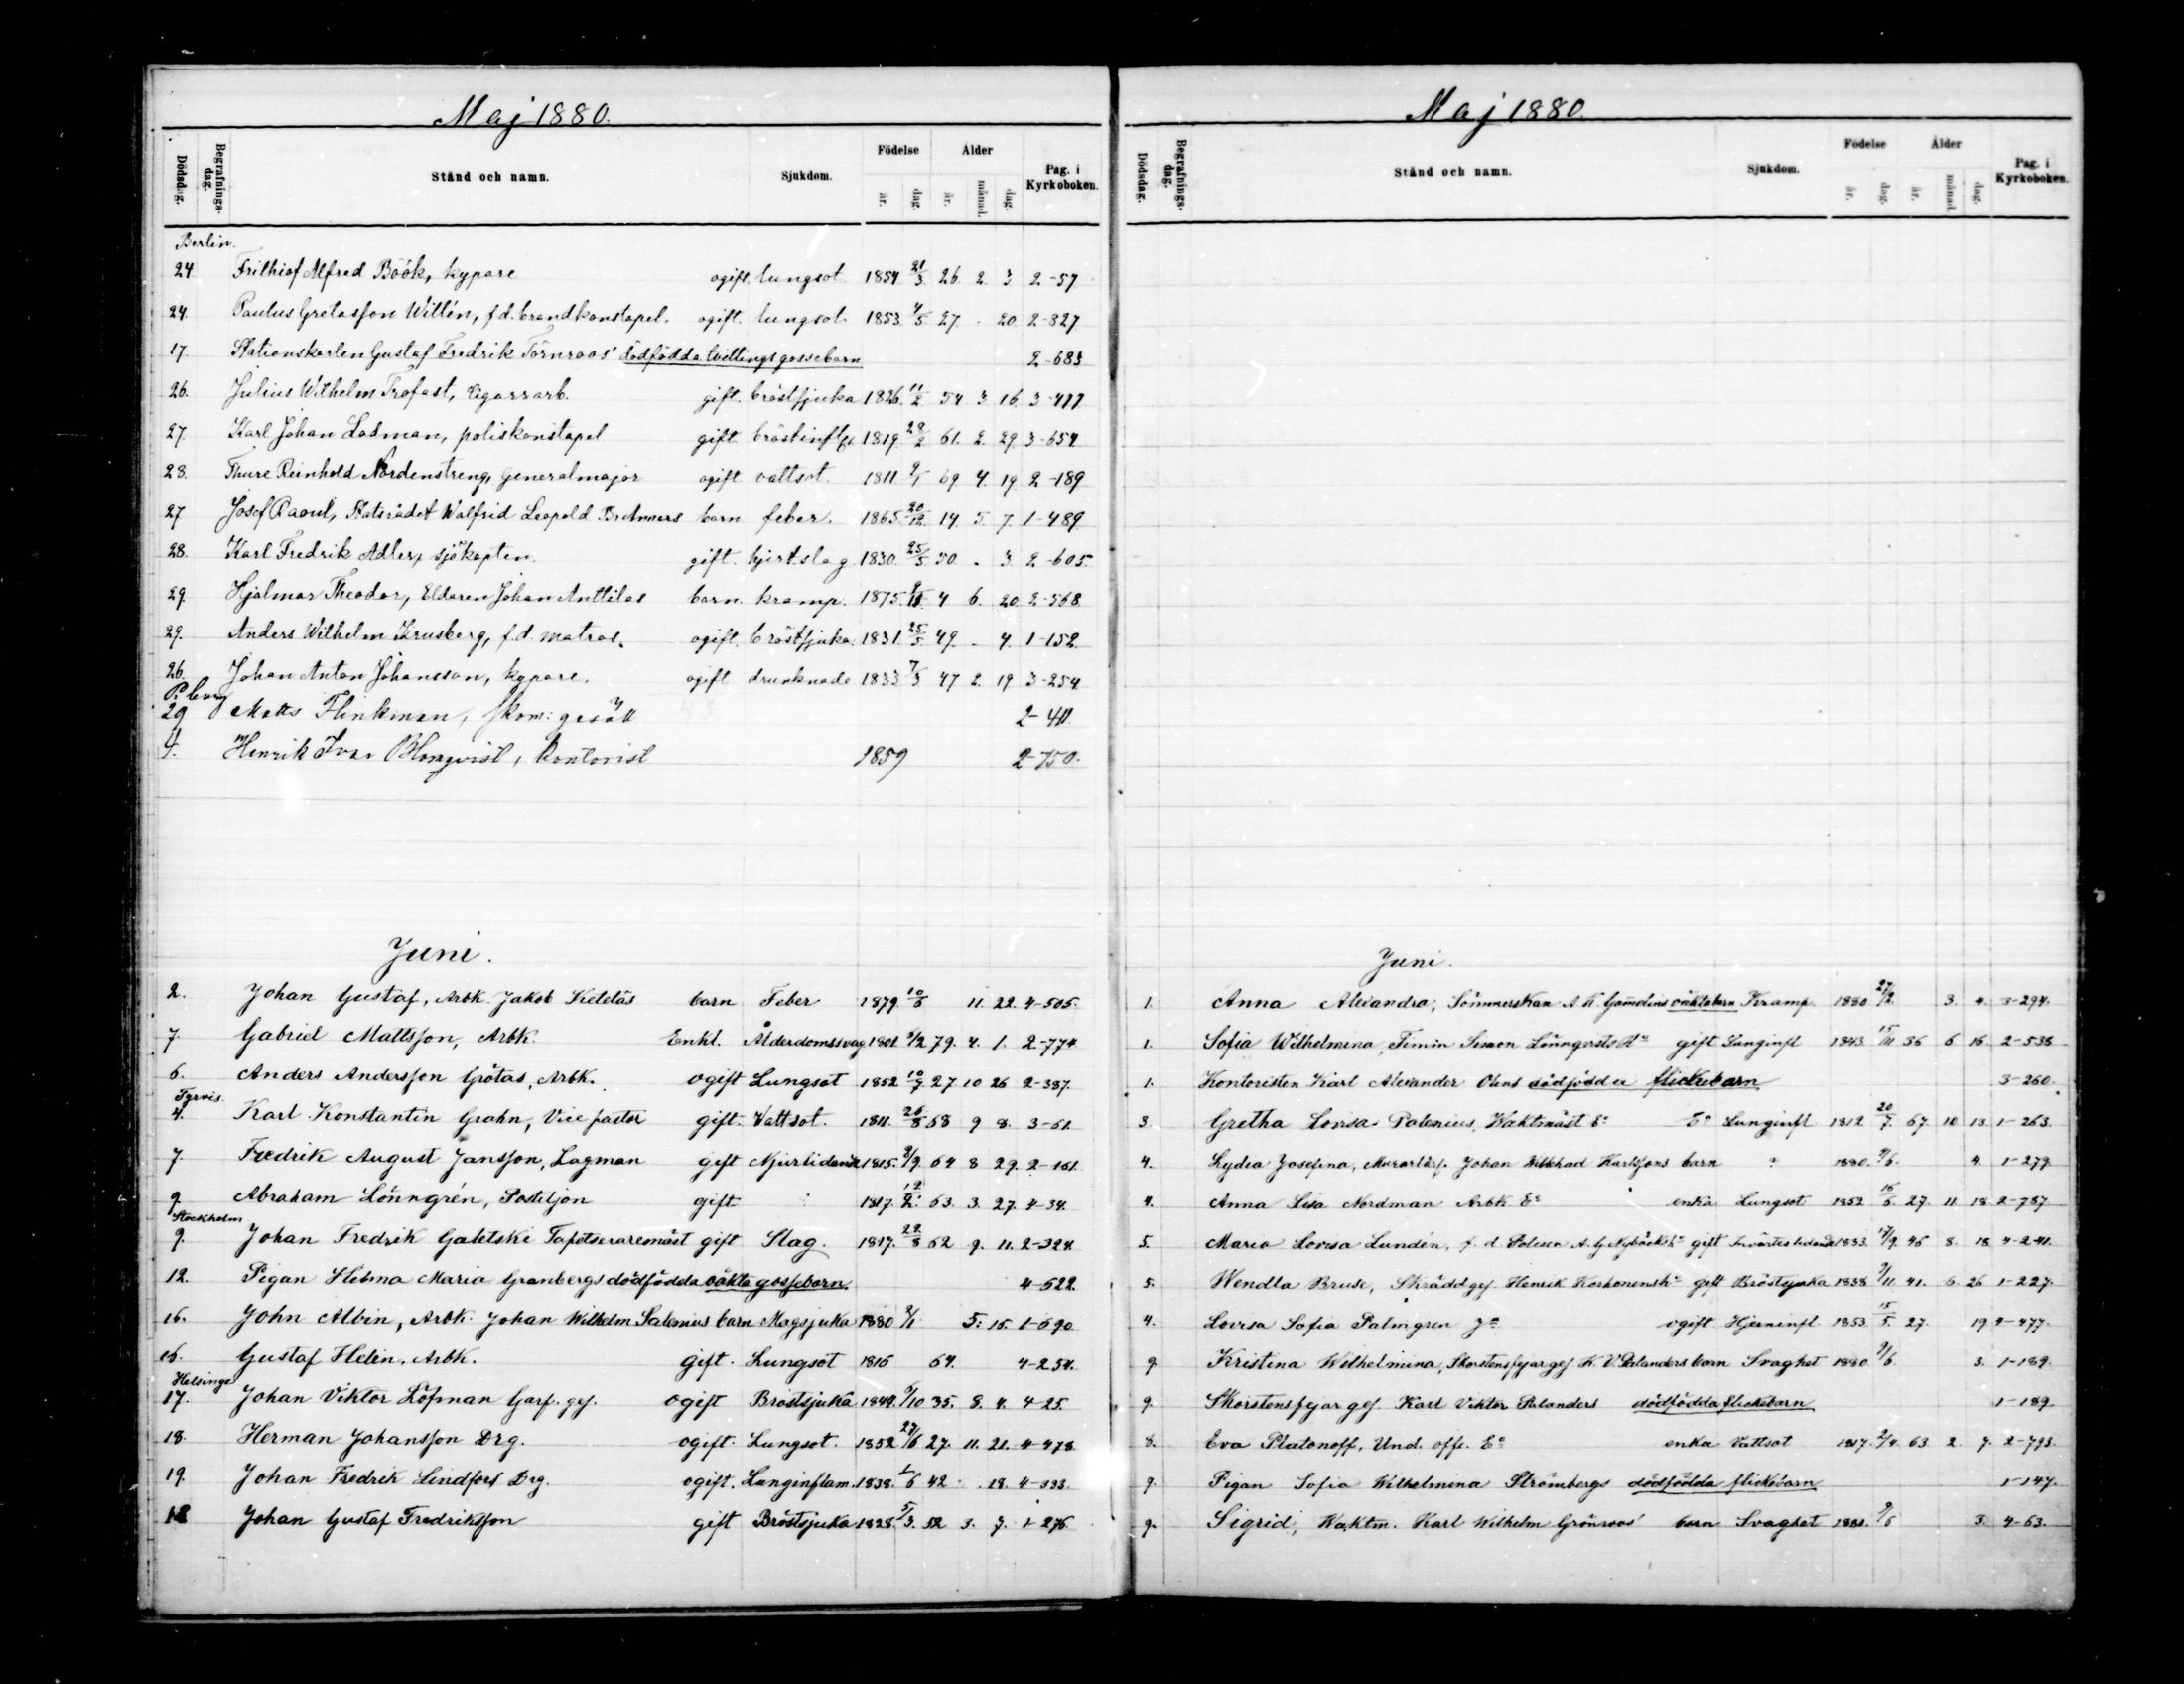 Maj 1880.
Dödsdag. Begrafnings-dag. Stånd och namn. Sjukdom. Födelse år. dag. Ålder år. månad. dag. Pag. i Kyrkoboken.
Berlin.
24 Frithiof Alfred Böök, kypare ogift. lungsot 1854 21/3 26 2 3 2-57
24. Paulus Gretasson Willén, f.d. brandkonstapel. ogift. lungsot. 1853 4/5 27 . 20 2-827
17. Stationskarlen Gustaf Fredrik Törnroos' dödfödda tvillings gossebarn 2-683
26. Julius Wilhelm Trofast, Cigarrarb. gift. bröstsjuka 1826. 11/2 54 3. 16. 3-477
27. Karl Johan Ladman, poliskonstapel gift bröstinfl. 1819. 28/2 61. 2. 29. 3-654
28. Thure Reinhold Nordenstreng, generalmajor ogift vattsot. 1811. 9/1 69 4. 19. 2-189
27 Josef Raoul, Statsrådet Walfrid Leopold Brunners barn feber. 1865. 20/12. 14. 5. 7. 1-489
28. Karl Fredrik Adler, sjökapten. gift. hjertslag. 1830. 25/5 50 . 3. 2-605.
29. Hjalmar Theodor, Eldaren Johan Anttilas barn. kramp. 1875. 4 6. 20 2-568
29. Anders Wilhelm Krusberg, f.d. matros. ogift bröstsjuka. 1831. 25/5 49. - 4. 1-152
26. Johan Anton Johansson, kypare. ogift drunknade 1833 7/3 47 2. 19 3-254.
P. burg
29 Matts Flinkman, skom: gesäll 2-411.
4. Henrik Ivar Blomqvist, Kontorist 1859 2-750.
Juni.
2. Johan Gustaf, Arbk. Jakob Keteläs barn Feber 1879. 10/6 11. 22. 4-505.
7. Gabriel Mattsson, Arbk. Enkl. Ålderdomssvag. 1801. 6/2 79. 4. 1. 2-774
6. Anders Andersson Götas, Arbk. ogift Lungsot 1852 10/7 27 10 26 2-387.
Tyrvis.
4. Karl Konstantin Grahn, Vice pastor gift. Vattsot. 1811. 26/8 68 9 8. 3-61.
7 Fredrik August Jansson, Lagman gift Njurlidande 1815. 8/9. 64 8 29. 2-161
9. Abraham Lönngrén, Postiljon gift 1817. 12/2. 63. 3. 27. 4-34.
Stockholm
9. Johan Fredrik Galetski Tapetseraremäst gift Slag. 1817. 22/8 62 9. 11. 2-324.
12. Pigan Helena Maria Granbergs dödfödda oäkta gossebarn. 4-522.
16. John Albin, Arbk. Johan Wilhelm Salenius barn Magsjuka 1880 5. 15. 1-690
16. Gustaf Helin, Arbk. gift. Lungsot 1816 64. 4-254.
Helsinge
17. Johan Viktor Löfman Garf. gef. ogift Bröstsjuka 1844. 9/10 35. 8. 4. 4-25.
18. Herman Johansson Drg. ogift. Lungsot. 1852 27/6 27. 11. 21. 4-478.
19. Johan Fredrik Lindfors Drg. ogift. Lunginflam. 1838. 1/6 42 . 18. 4-333.
18 Johan Gustaf Fredriksson gift Bröstsjuka 1828. 5/3. 52 3. 7. 1-276
Maj 1880.
Dödsdag. Begrafnings-dag. Stånd och namn. Sjukdom. Födelse år. dag. Ålder år. månad. dag. Pag. i Kyrkoboken.
Juni.
1. Anna Alexandra, Sömmerskan A. K. Gamelins oäkta barn Kramp. 1880 27/2. 3. 4. 3-294.
1. Sofia Wilhelmina, Timm Simon Lönnqvists Hu gift Lunginfl 1843. 15/11 36 6 16 2-538
1. Kontoristen Karl Alexander Olens dödfödda flickebarn 3-260.
3. Gretha Lovisa Palenius, Waktmäst Ea Ea Lunginfl 1812 20/7. 67. 10 13. 1-263.
4. Lydia Josefina, Murarlärl. Johan Willehad Karlssons barn ? 1880. 4. 1-279.
4. Anna Lisa Nordman Arbk Ea enka Lungsot 1852 16/6. 27. 11 18 2-787
5. Maria Lovisa Lundén, f. d. Polisen A. G. Nybäcks hu gift Invärtes lidande 1833. 17/9. 46 8. 18 4-2-41.
5. Wendla Bruse, Skräddgef. Henrik Korhonens hu gift Bröstsjuka 1838 9/11. 41. 6 26 1-227.
4. Lovisa Sofia Palmgren Ja ogift Hjerninfl. 1853 15/5. 27. 19 4-477.
9. Kristina Wilhelmina, Skorstensfejargef. K. V. Palanders barn Svaghet 1880. 9/6. 3. 1-189.
9. Skorstensfejar gef. Karl Viktor Palanders dödfödda flickebarn 1-189.
8. Eva Platonoff, Und. offi. Ea enka Vattsot 1817. 2/4. 63. 2. 7. 2-793.
9. Pigan Sofia Wilhelmina Strömbergs dödfödda flickebarn 1-147.
9. Sigrid, Waktm. Karl Wilhelm Grönroos' barn Svaghet 1880. 3. 4-63.